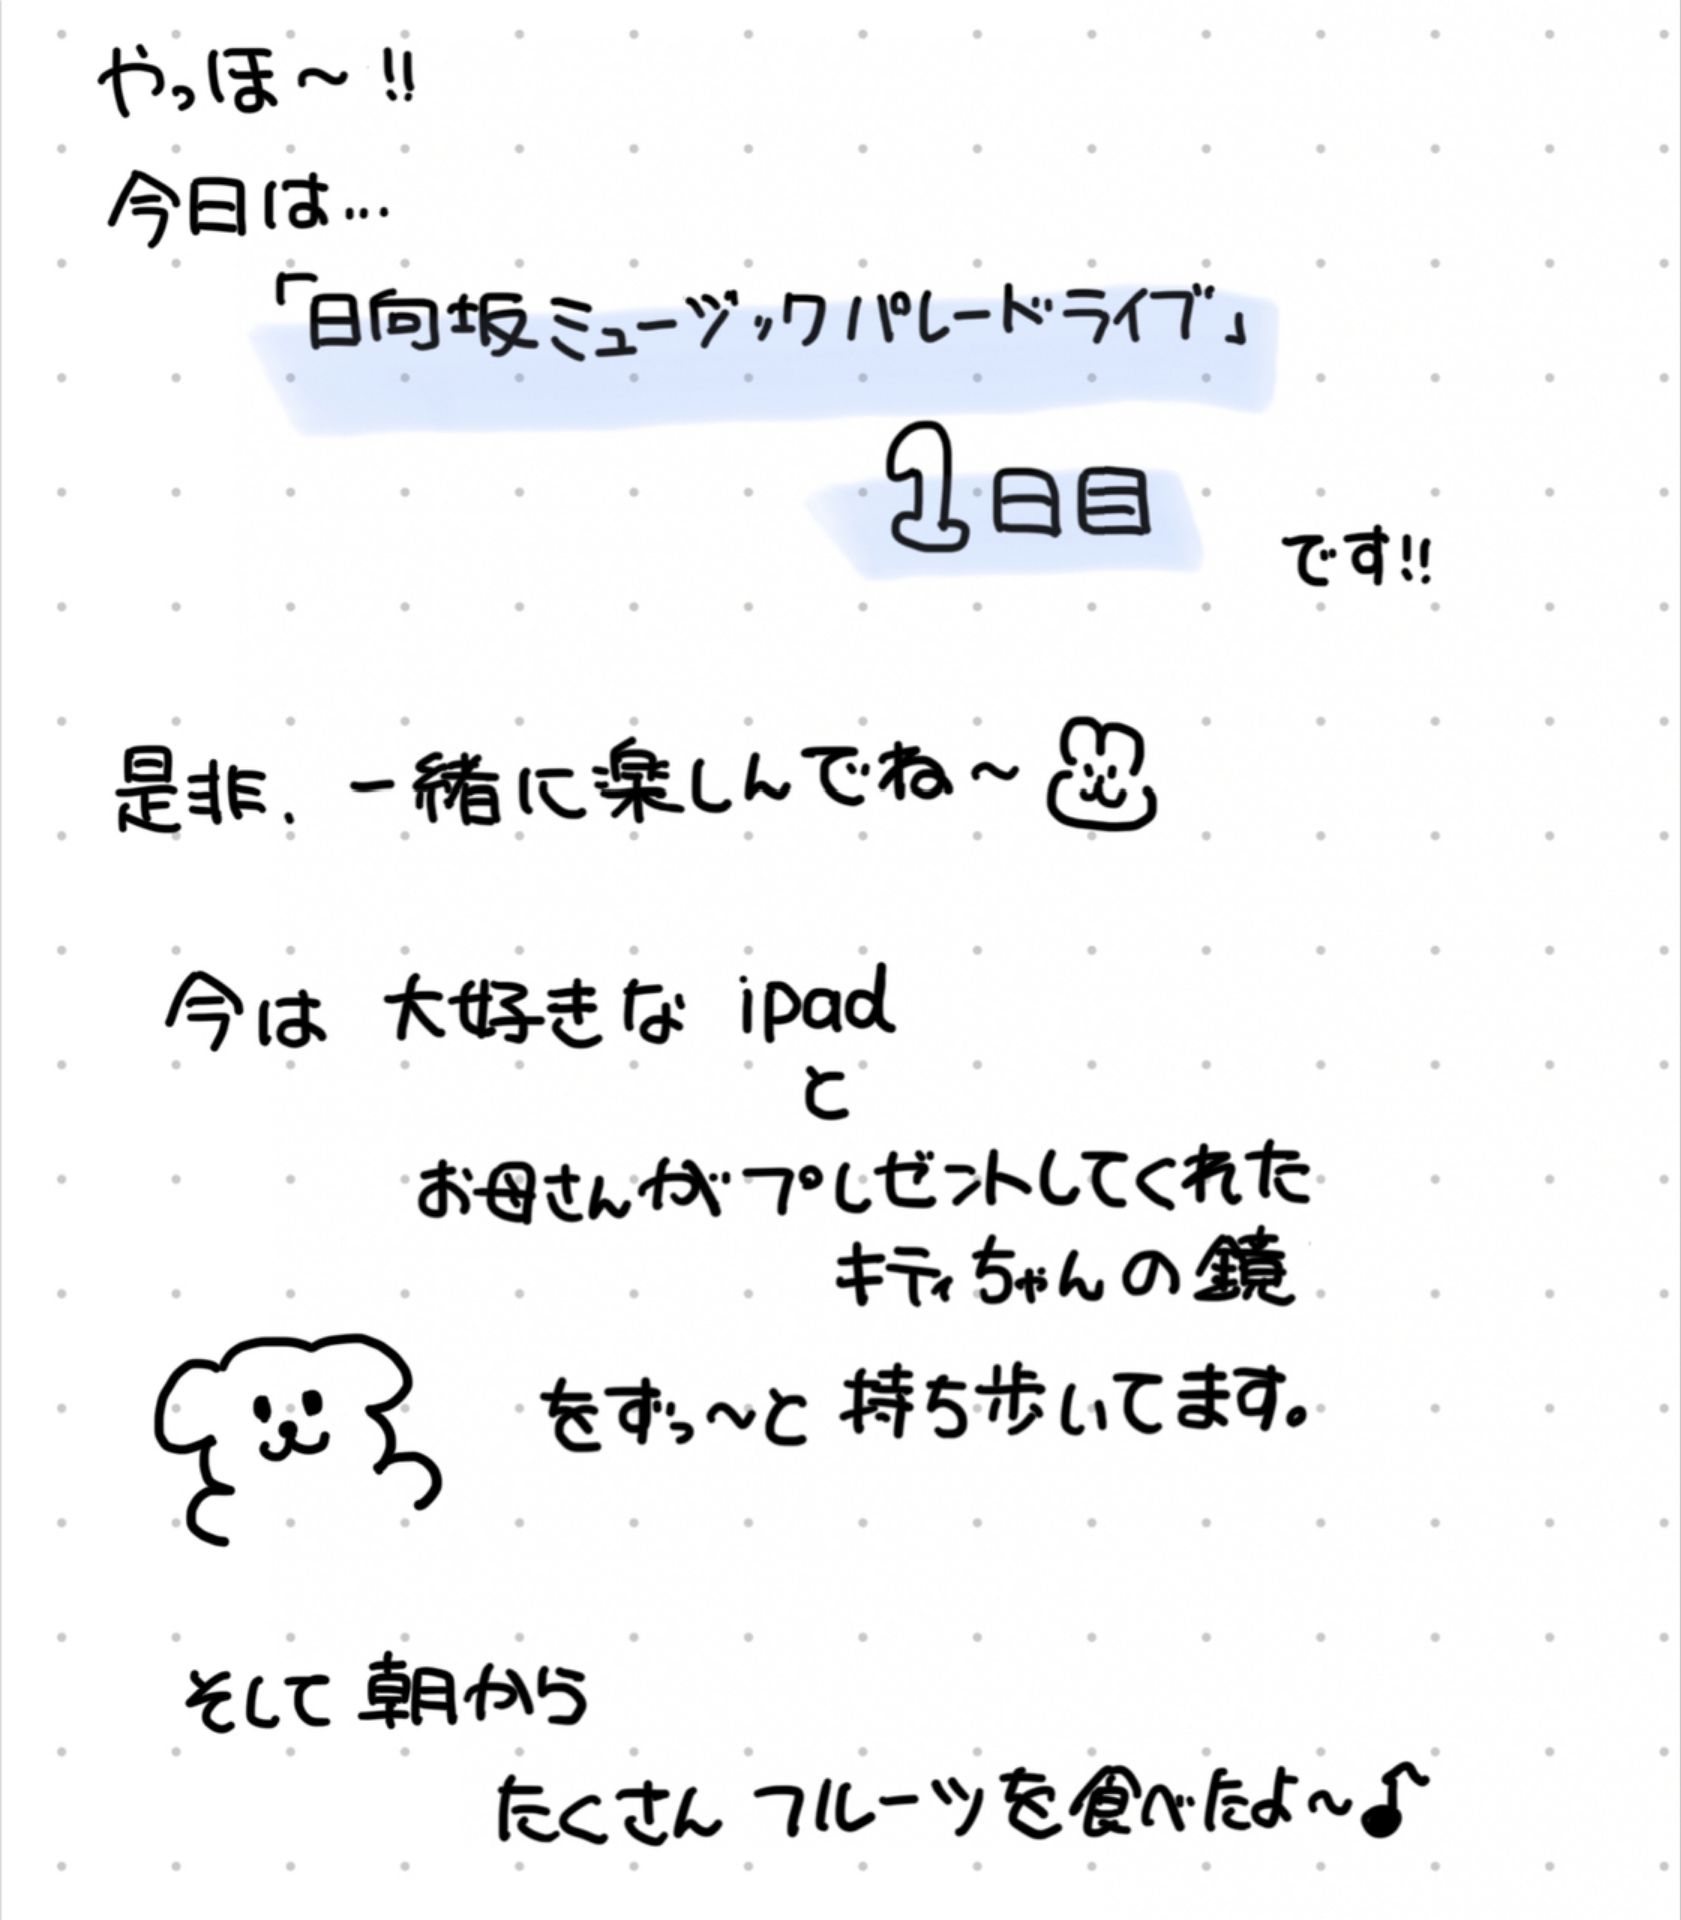 やっほ〜!!
今日は...
「日向坂ミュージックパレードライブ」
1日目
です!!
是非、一緒に楽しんでね〜
今は 大好きな ipad
と
お母さんがプレゼントしてくれた
キティちゃんの鏡
をずっ〜と 持ち歩いてます。
そして 朝から
たくさん フルーツを食べたよ〜♪